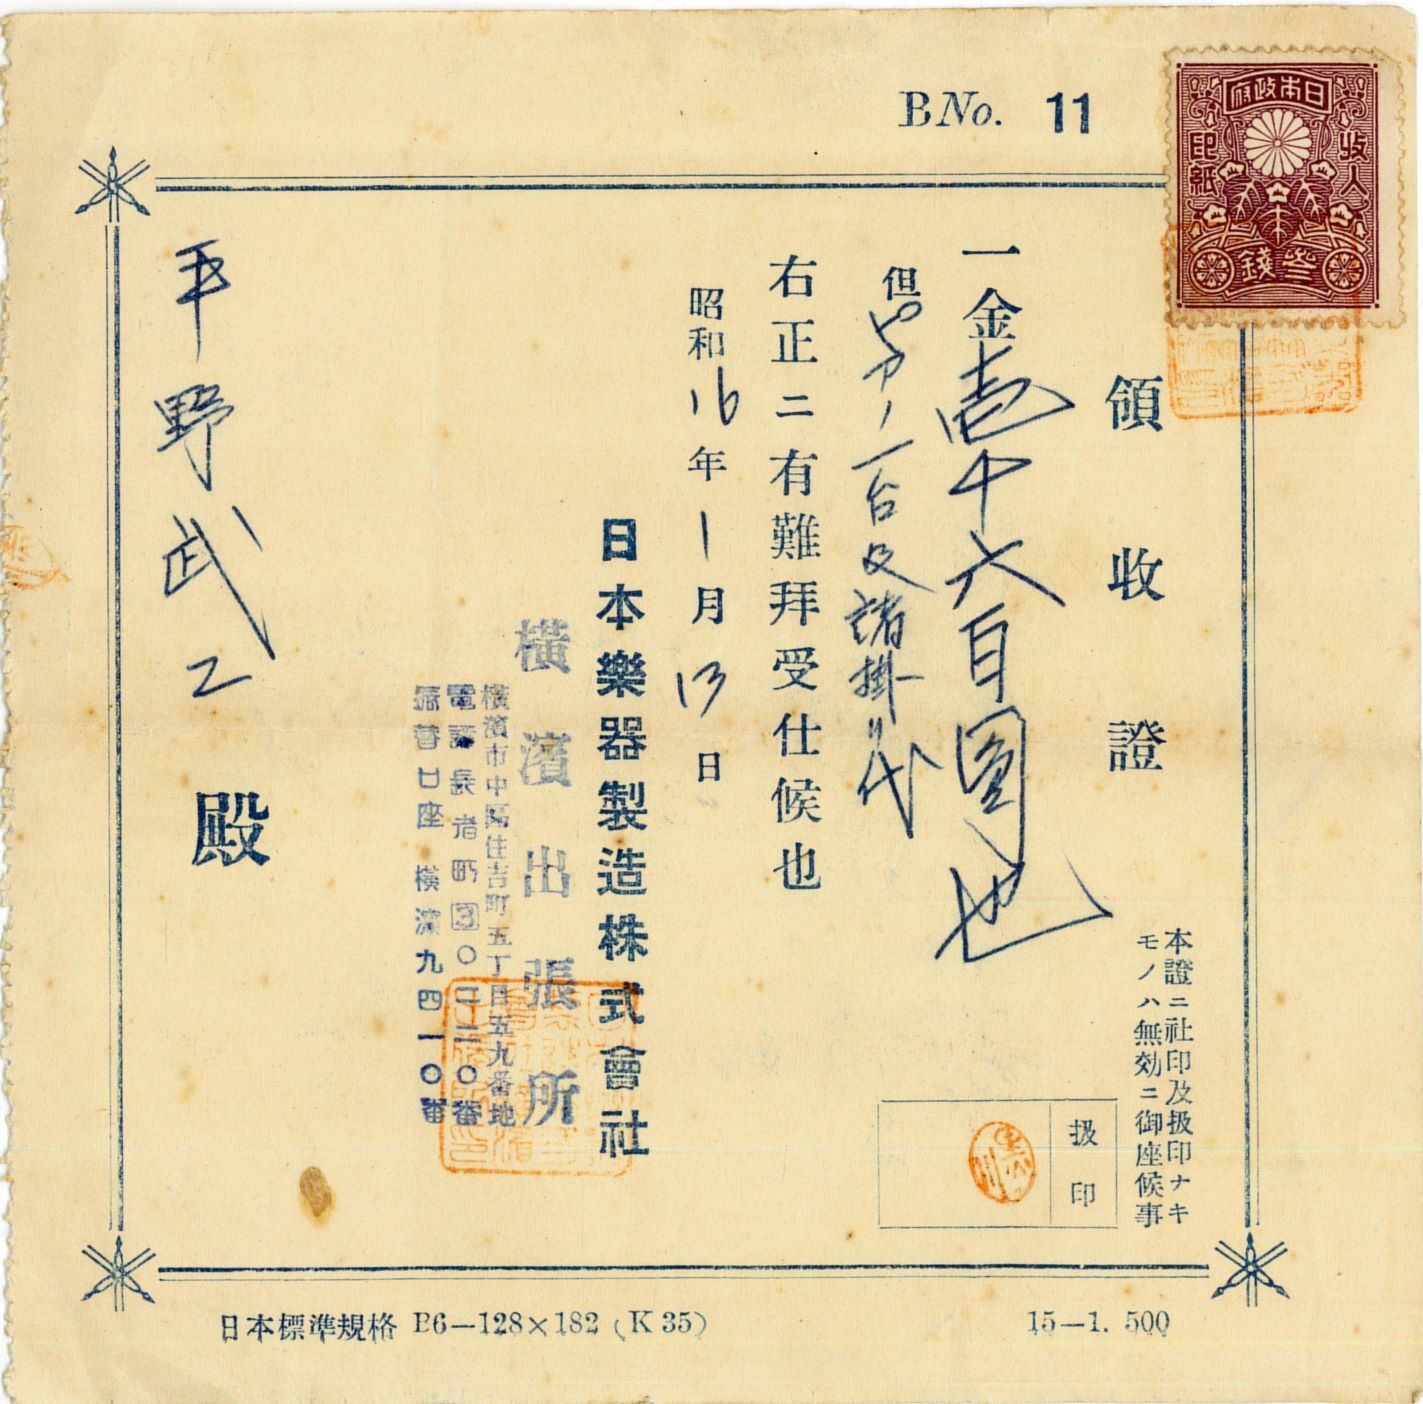 BNo. 11
日本政府
收入
印紙
参錢
領收證
一金壱千六百圓也
但ピアノ一台及諸掛リ代
右正ニ有難拜受仕候也
昭和16年1月13日
日本樂器製造株式會社
横濱出張所
横濱市中區住吉町五丁目五九番地
電話長者町③〇二二〇番
振替口座 横濱九四一〇番
平野武乙 殿
本證ニ社印及扱印ナキ
モノハ無効ニ御座候事
扱印
日本標準規格 B6—128×182 (K 35)
15—1. 500